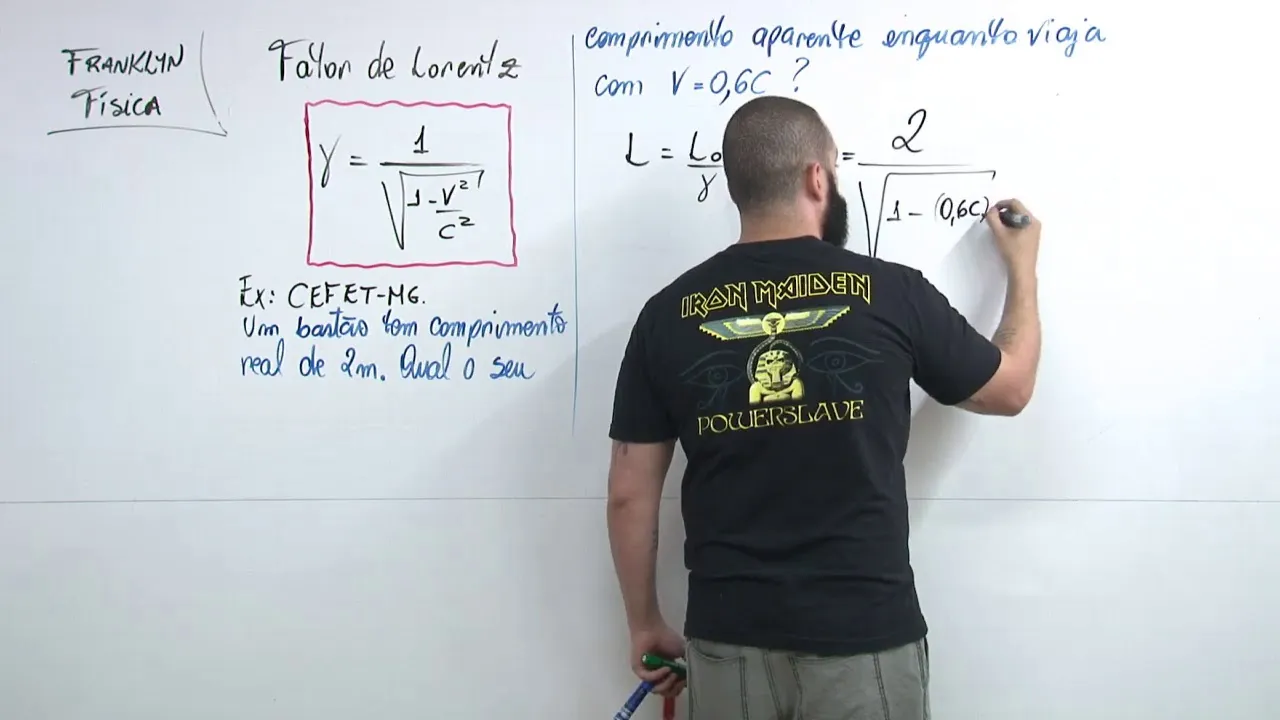 FRANKLYN
FÍSICA
Fator de Lorentz
γ = 1
√1 - V²
C²
Ex: CEFET-MG.
Um bastão tem comprimento
real de 2m. Qual o seu
comprimento aparente enquanto viaja
com V = 0,6C ?
L = L₀
γ
= 2
√1 - (0,6C)
IRON MAIDEN
POWERSLAVE